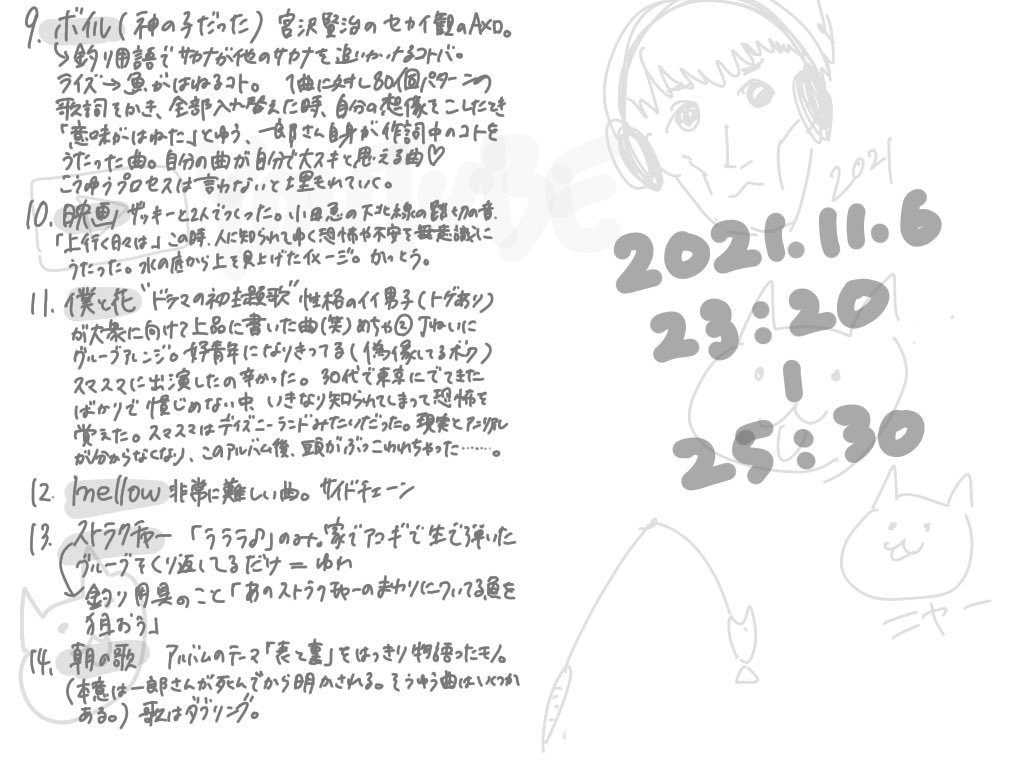 9. ボイル(神の子だった) 宮沢賢治のセカイ観のAメロ。
↳釣り用語でサカナが他のサカナを追いかけるコトバ。
ライズ→魚がはねるコト。 1曲に対し80個パターンの
歌詞をかき、全部入れ替えた時、自分の想像をこしたとき
「意味がはねた」とゆう、一郎さん自身が作詞中のコトを
うたった曲。自分の曲が自分で大スキと思える曲♡
こうゆうプロセスは言わないと埋もれていく。
10. 映画 ザッキーと2人でつくった。小田急の下北線の踏切の音.
「上行く日々は」この時、人に知られてゆく恐怖や不安を無意識に
うたった。水の底から上を見上げたイメージ。かっとう。
11. 僕と花 "ドラマの初主題歌" 性格のイイ男子(トゲあり)
が大衆に向けて上品に書いた曲(笑) めちゃ② ていねいに
グルーブアレンジ。好青年になりきってる(偽像してるボク)
スマスマに出演したの辛かった。30代で東京にでてきた
ばかりで慣じめない中、いきなり知られてしまって恐怖を
覚えた。スマスマはディズニーランドみたいだった。現実と
が分からなくなり、このアルバム後、頭がぶっこわれちゃった……。
12. mellow 非常に難しい曲。サイドチェーン
13. ストラクチャー 「ラララ♪」のみ。家でアコギで生で弾いた
グルーブをくり返してるだけ = ゆれ
釣り用具のこと「あのストラクチャーのまわりについてる魚を
狙おう」
14. 朝の歌 アルバムのテーマ「表と裏」をはっきり物語ったモノ。
(本意は一郎さんが死んでから明かされる。そうゆう曲はいくつか
ある。) 歌はダブリング。
2021
2021.11.6
23:20
|
25:30
ニャー